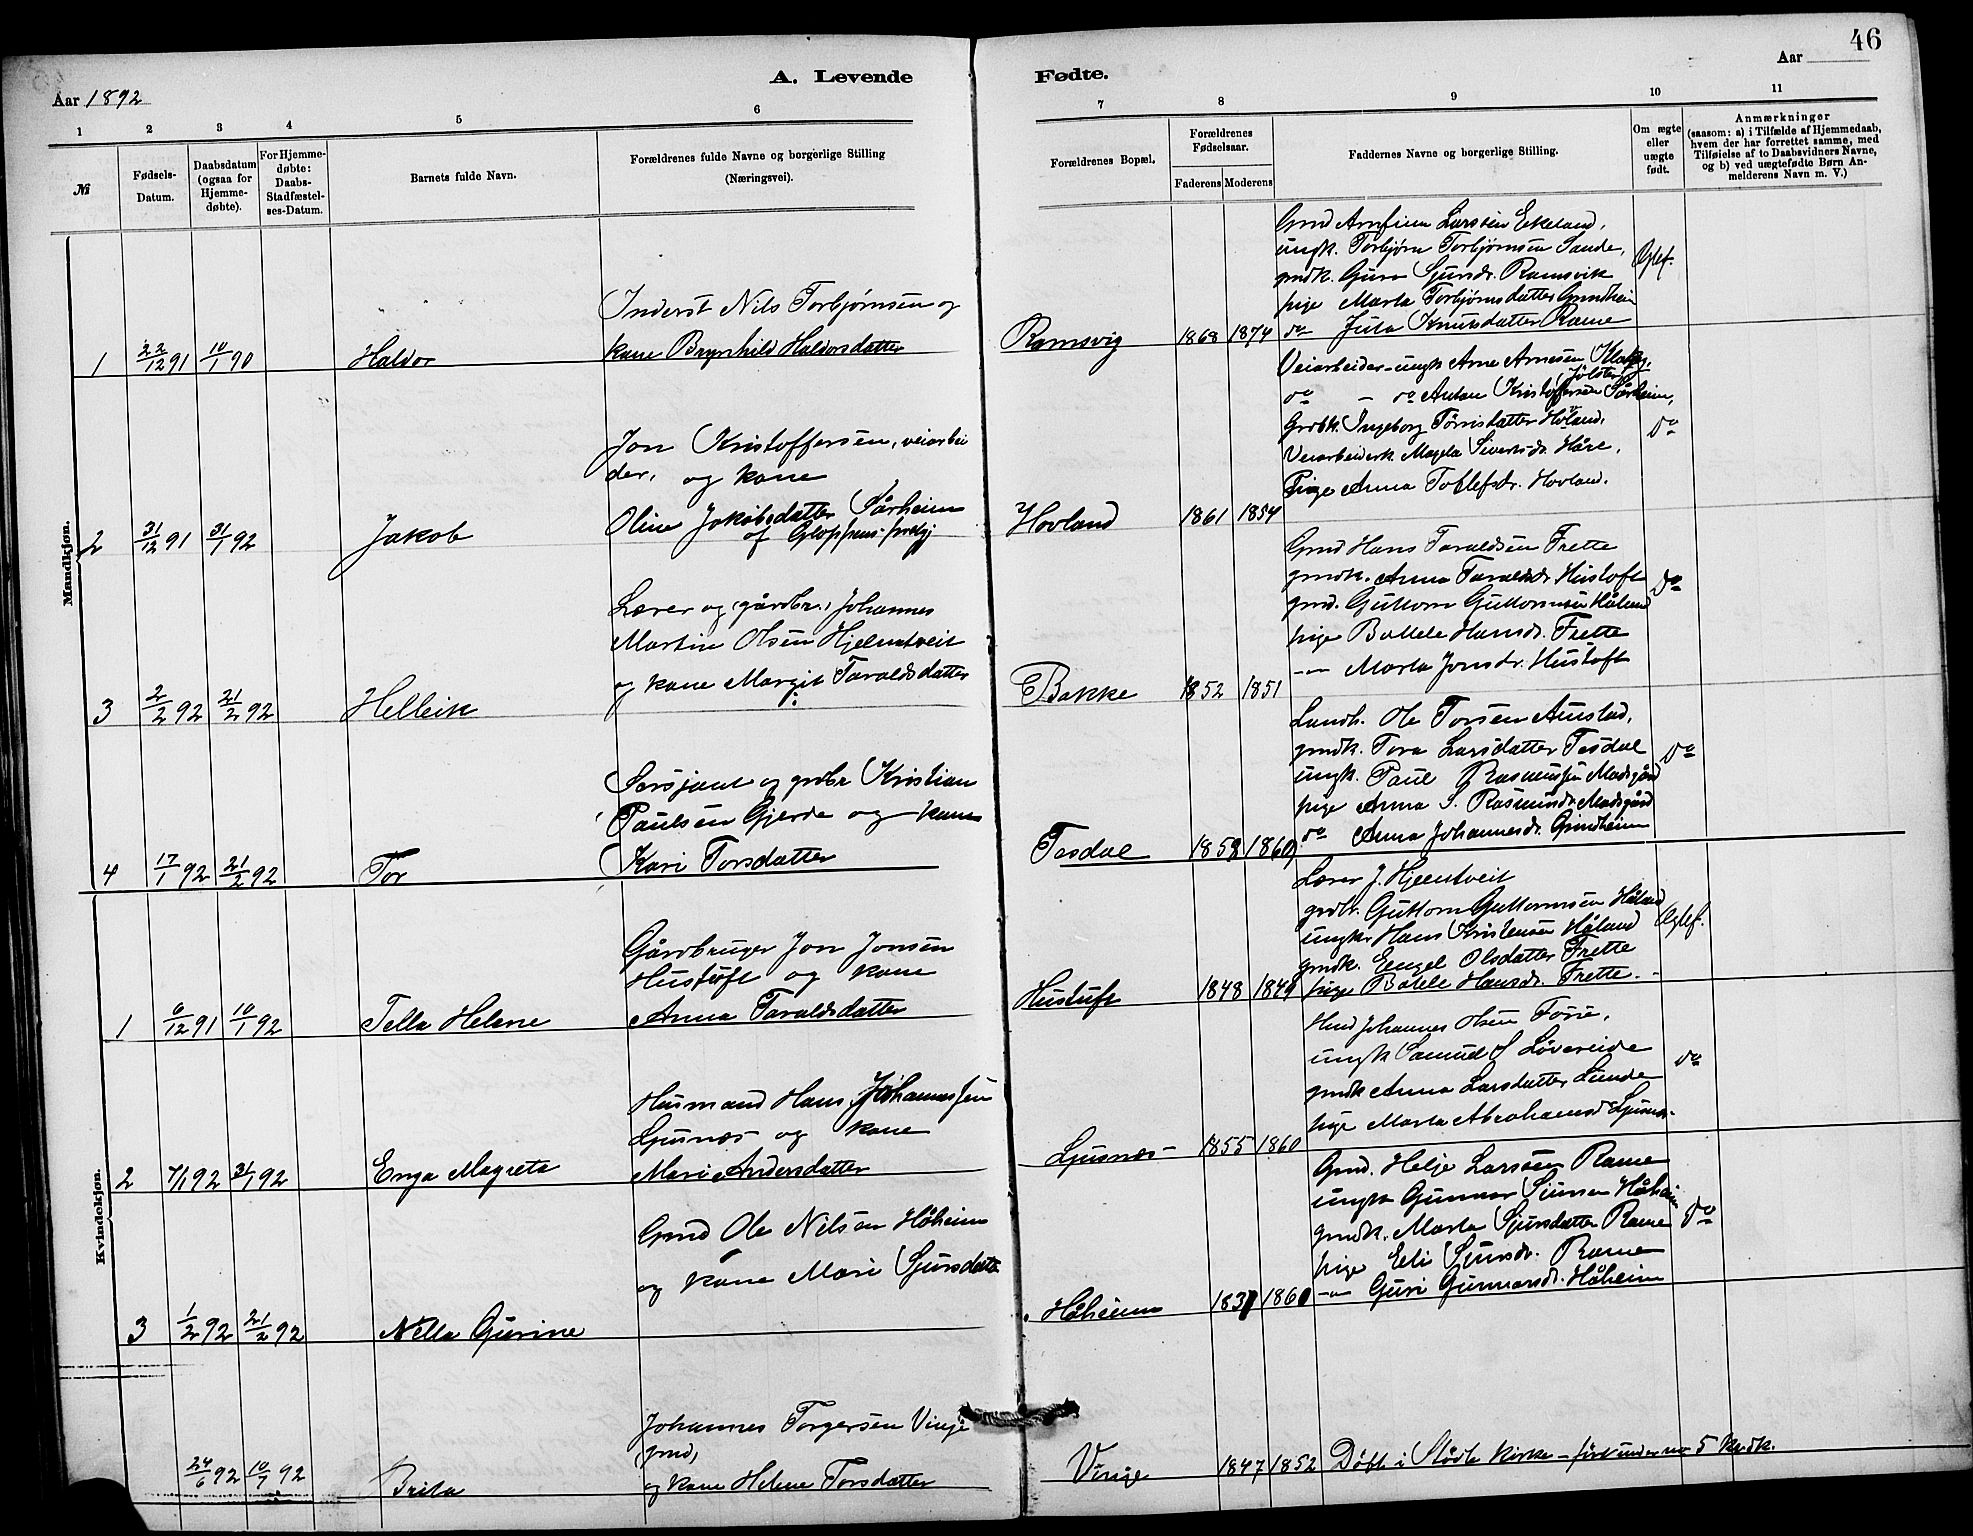 46
A. Levende Fødte.
Aar 1892
Aar
1 2 3 4 5 6 7 8 9 10 11
№
Fødsels-
Datum.
Daabsdatum
(ogsaa for
Hjemme-
døbte).
For Hjemme-
døbte:
Daabs-
Stadfæstel-
ses-Datum.
Barnets fulde Navn.
Forældrenes fulde Navne og borgerlige Stilling
(Næringsvei).
Forældrenes Bopæl.
Forældrenes
Fødselsaar.
Faderens Moderens
Faddernes Navne og borgerlige Stilling.
Om ægte
eller
uægte
født.
Anmærkninger
(saasom: a) i Tilfælde af Hjemmedaab,
hvem der har forrettet samme, med
Tilføielse af to Daabsvidners Navne,
og b) ved uægtefødte Børn An-
melderens Navn m. V.)
Mandkjøn.
1 22/12 91 10/1 90 Haldor
Inderst Nils Torbjørnsen og
kone Brynhild Haldorsdatter
Ramsvig 1868 1874
Grnd Arnfinn Larssen Ekeland,
ungk. Torbjørn Torbjørnsen Sande,
grndk. Guro Sjursdr. Ramsvik
pige Marta Torbjørnsdatter Grindheim
do Jula Knutsdatter Rame
Egtef.
2 31/12 91 31/1 92 Jakob
Jon Kristoffersen, veiarbei
der, og kone
Oline Jakobsdatter Sårheim
af Gloppens prstgj
Hovland 1861 1854
Veiarbeider-ungk Arne Arnesen
Jølster
do - do Anton Kristoffersen Sårheim,
Grbk. Ingeborg Tørrisdatter Høland,
Veiarbeiderk. Magla Siversdr. Håre,
Pige Anna Tollefsdr. Hovland.
do
3 2/2 92 21/2 92 Helleik
Lærer og gårdbr. Johannes
Martin Olsen Hjelmtveit
og kone Margit Taraldsdatter
Bakke 1852 1851
Grnd Hans Taraldsen Frette
grndk. Anna Taraldsdr. Hustoft
grnd. Guttorm Guttormsen Håland
pige Bollele Hansdr. Frette
-"- Marta Jonsdr. Hustoft
do
4 17/1 92 21/2 92 Tor
Sersjant og grdbr Kristian
Paulsen Gjerde og kone
Kari Torsdatter
Tesdal 1858 1860
Landh. Ole Torsen Austad,
grndk. Tora Larsdatter Tesdal
ungk. Paul Rasmussen Madsgård
pige Anna S. Rasmusdr. Madsgård
do Anna Johannesdr. Grindheim
do
Kvindekjøn.
1 9/12 91 10/1 92 Tella Helene
Gårdbruger Jon Jonsen
Hustoft og kone
Anna Taraldsdatter
Hustuft 1848 1849
Lærer J. Hjelmtveit
grdbr. Guttorm Guttormsen Håland
ungkr Hans Kristensen Håland
grndk. Engel Olsdatter Frette
pige Botele Hansdr. Frette.
Egtef.
2 7/1 92 31/1 92 Enga Magreta
Husmand Hans Johannessen
Ljusnes og kone
Mari Andersdatter
Ljusnes 1855 1860
Hmd Johannes Olsen
ungk Samuel S Løvereide
grndk Anna Larsdatter Lunde
pige Marta Abrahamsd Ljusn.
do
3 1/2 92 21/2 92 Nella Gurine
Grnd Ole Nilsen Håheim
og kone Mari Sjursdatter
Håheim 1837 1860
Grnd. Helje Larsen Rame
ungk Gunnar Simsen Håheim
grndk. Marta Sjursdatter Rame
pige Eli Sjursdr. Rame
-"- Guri Gunnarsdr. Håheim
do
24/6 92 10/7 92 Brita
Johannes Torgersen Vinje
grnd,
og kone Helene Torsdatter
Vinje 1847 1852
Døbt i Stødle kirke - ført under no 5 Kvdk.